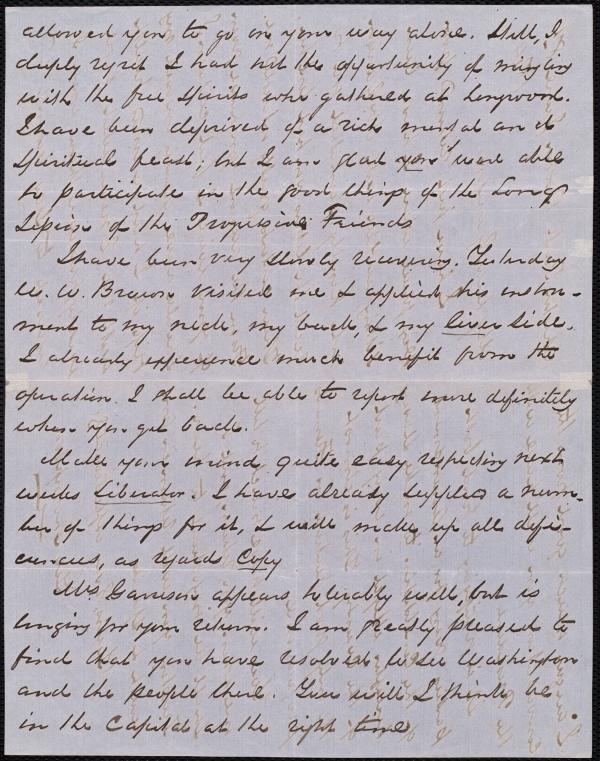 allowed you to go on your way alone. Still, I
deeply regret I had not the opportunity of mingling
with the free spirits who gathered at Longwood.
I have been deprived of a rich mental and
spiritual feast; but I am glad you were able
to participate in the good things of the Long
Session of the Progressive Friends
I have been very slowly recovering. Yesterday
W. Brown visited me & applied his instru-
ment to my neck, my back, & my liver side.
I already experience much benefit from the
operation. I shall be able to report more definitely
when you get back.
Make your mind quite easy respecting next
weeks Liberator. I have already supplied a num-
ber of things for it, & will make up all defi-
ciencies, as regards Copy
Mrs Garrison appears tolerably well, but is
longing for your return. I am greatly pleased to
find that you have resolved to see Washington
and the people there. You will I think be
in the Capital at the right time